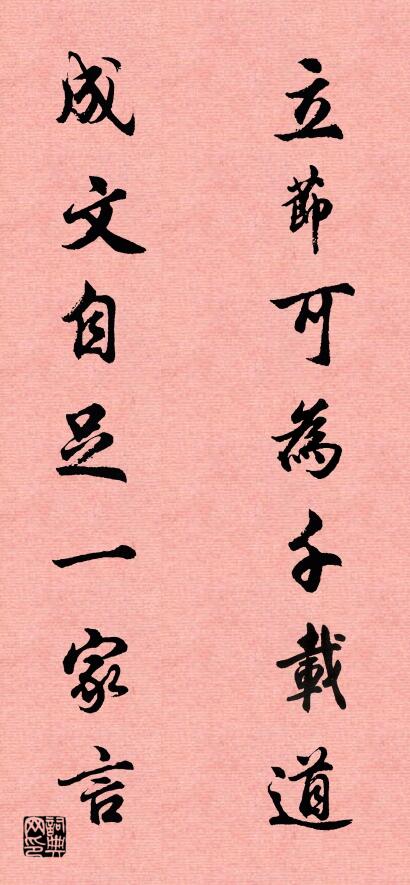 立節可為千載道
成文自足一家言
詞典网印